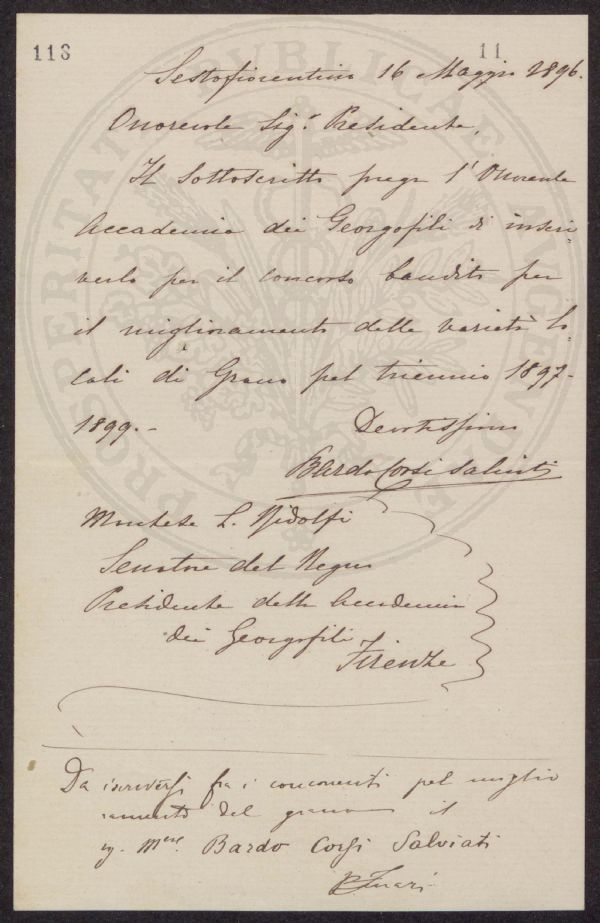 113
11
Sestofiorentino 16 Maggio 1896.
Onorevole Sig.r Presidente,
Il Sottoscritto prega l'Onorevole
Accademia dei Georgofili di inseri-
verlo per il concorso bandito per
il miglioramento delle varietà lo-
cali di Grano pel triennio 1897-
1899.-
Devotissimo
Bardo Corsi Salviati
Marchese L. Ridolfi
Senatore del Regno
Presidente della Accademia
dei Georgofili
Firenze
Da inscriversi fra i concorrenti pel miglio
ramento del grano il
Sig. Mse. Bardo Corsi Salviati
PROSPERITATI PUBLICAE AUGENDAE